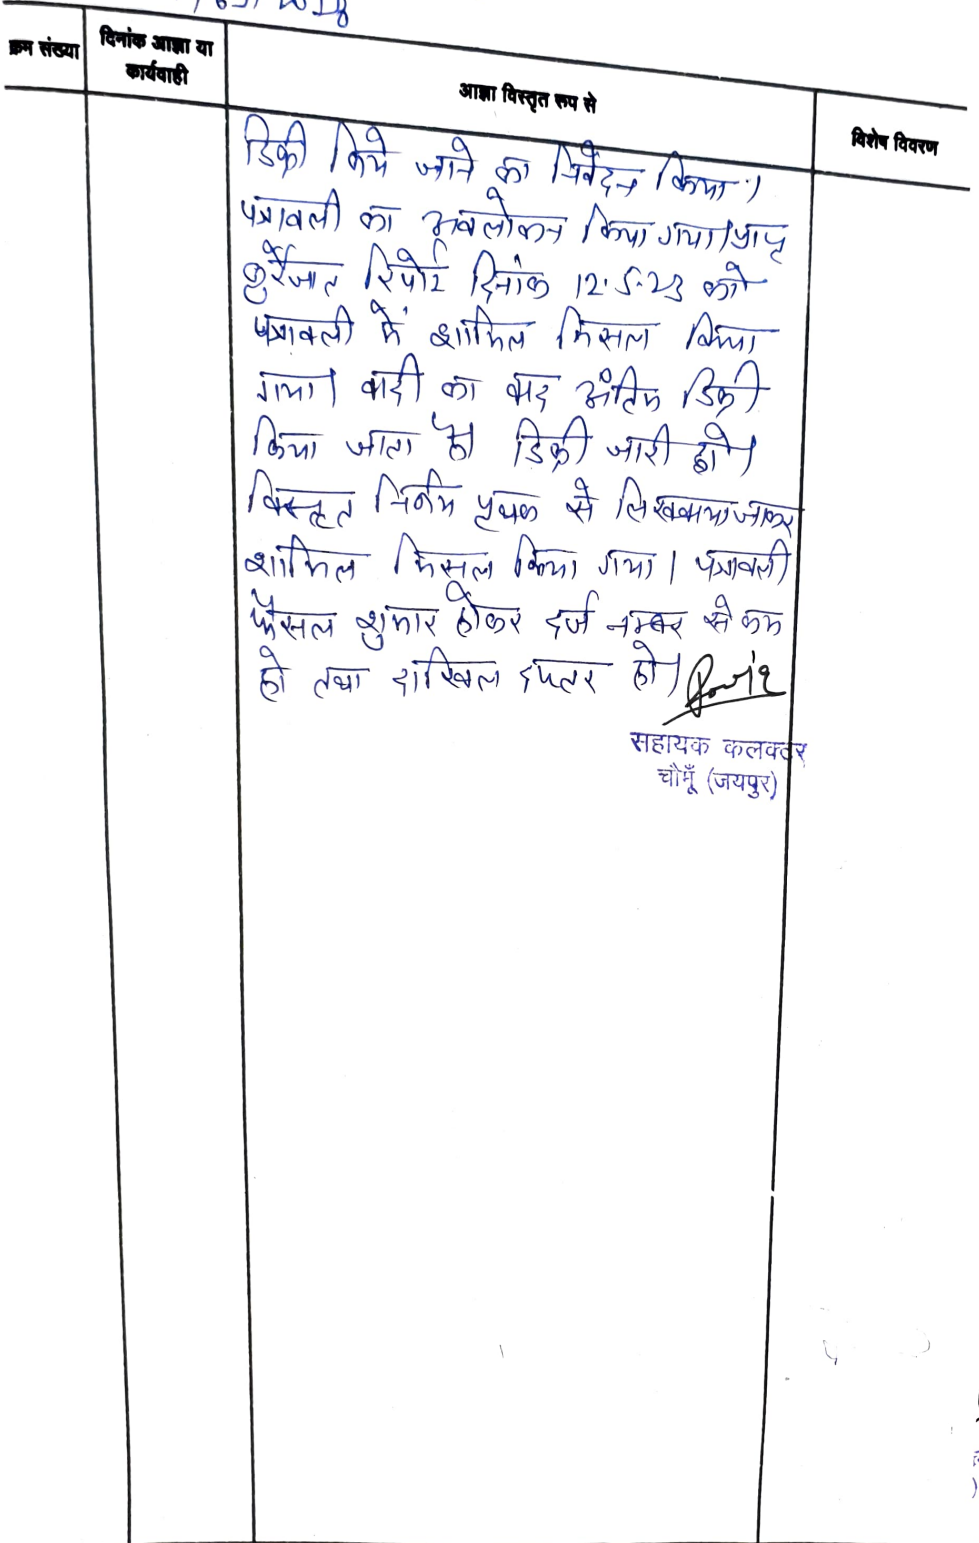 क्रम संख्या
दिनांक आज्ञा या
कार्यवाही
आज्ञा विस्तृत रूप से
विशेष विवरण
डिक्री किये जाने का निवेदन किया।
पत्रावली का अवलोकन किया गया। प्राप्त
कुर्रेजात रिपोर्ट दिनांक 12.5.23 को
पत्रावली में शामिल मिसल किया
गया। वादी का वाद अंतिम डिक्री
किया जाता है। डिक्री जारी हो।
विस्तृत निर्णय पृथक से लिखवाया जाकर
शामिल मिसल किया गया। पत्रावली
फैसल शुमार होकर दर्ज नम्बर से कम
हो तथा दाखिल दफ्तर हो।
सहायक कलक्टर
चौमूँ (जयपुर)